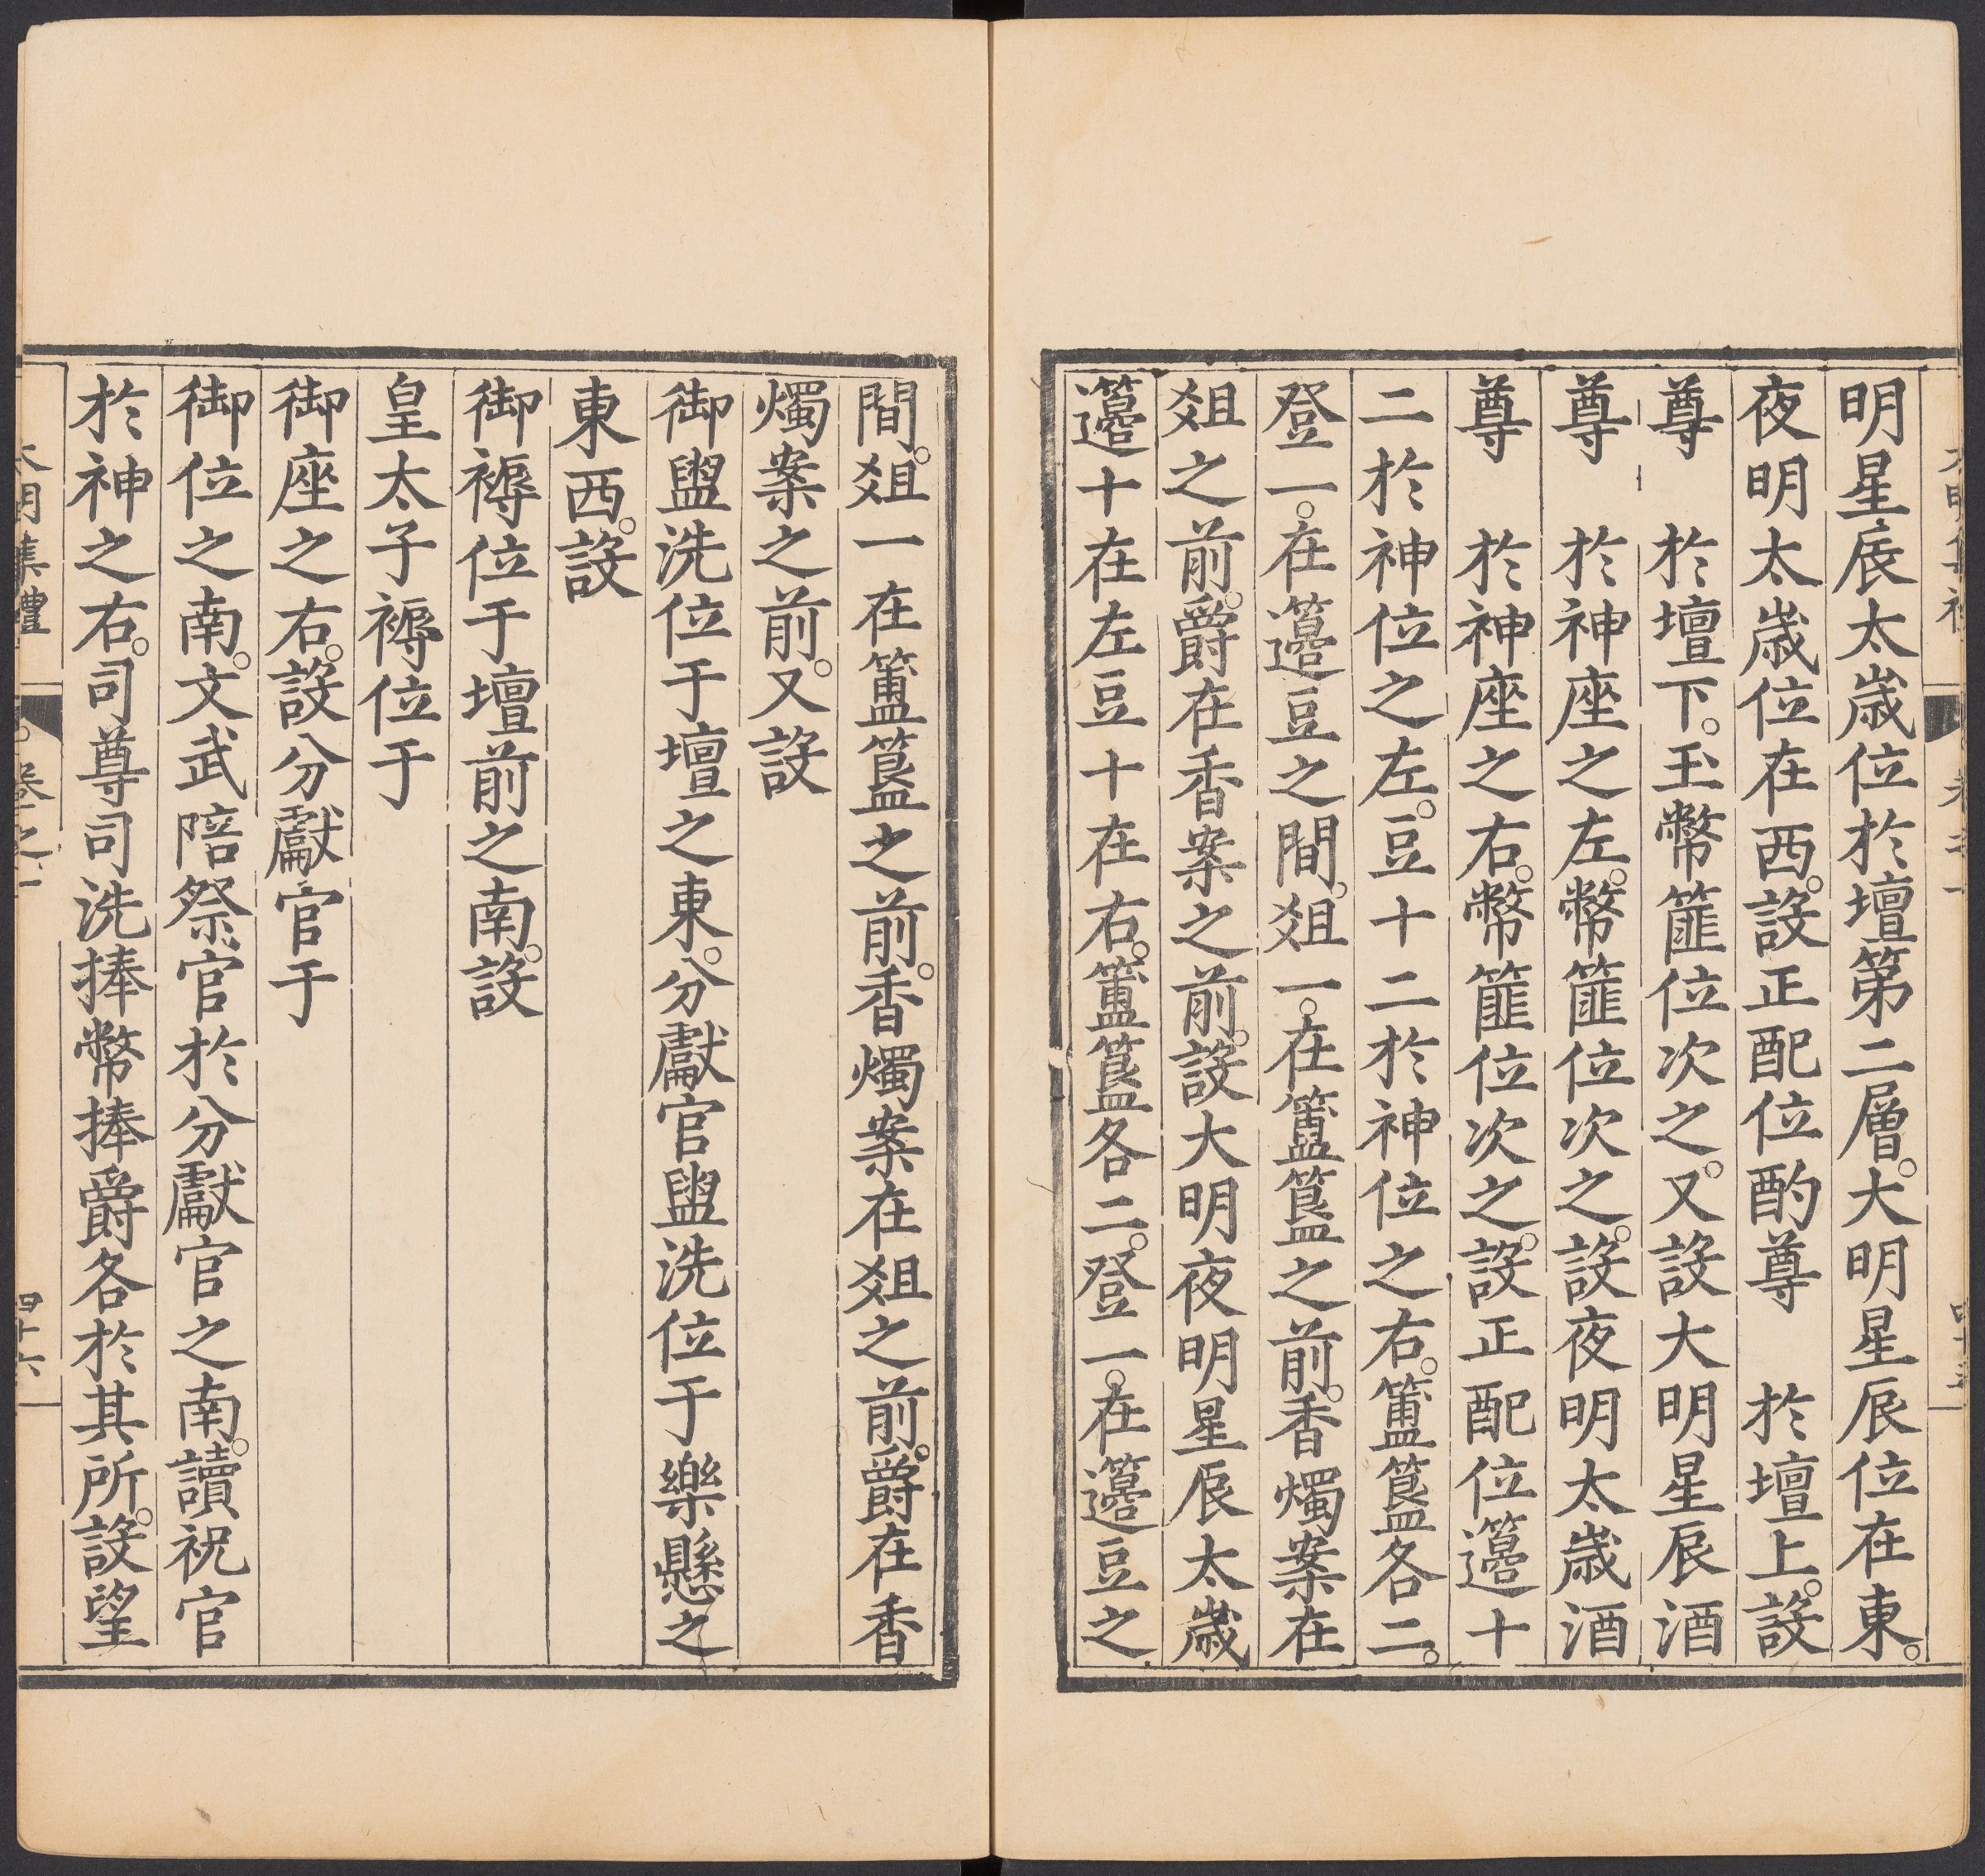 明星辰太歳位於壇第二層。大明星辰位在東。
夜明太歳位在西。設正配位酌尊　於壇上。設
尊　於壇下。玉幣篚位次之。又設大明星辰酒
尊　於神座之左。幣篚位次之。設夜明太歳酒
尊　於神座之右。幣篚位次之。設正配位籩十
二於神位之左。豆十二於神位之右。簠簋各二。
登一。在籩豆之間。俎一。在簠簋之前。香燭案在
俎之前。爵在香案之前。設大明夜明星辰太歳
籩十在左豆十在右。簠簋各二。登一。在籩豆之
間。俎一在簠簋之前。香燭案在俎之前。爵在香
燭案之前。又設
御盥洗位于壇之東。分獻官盥洗位于樂懸之
東西。設
御褥位于壇前之南。設
皇太子褥位于
御座之右。設分獻官于
御位之南。文武陪祭官於分獻官之南。讀祝官
於神之右。司尊司洗捧幣捧爵各於其所。設望
大明集禮　卷之二　四十六